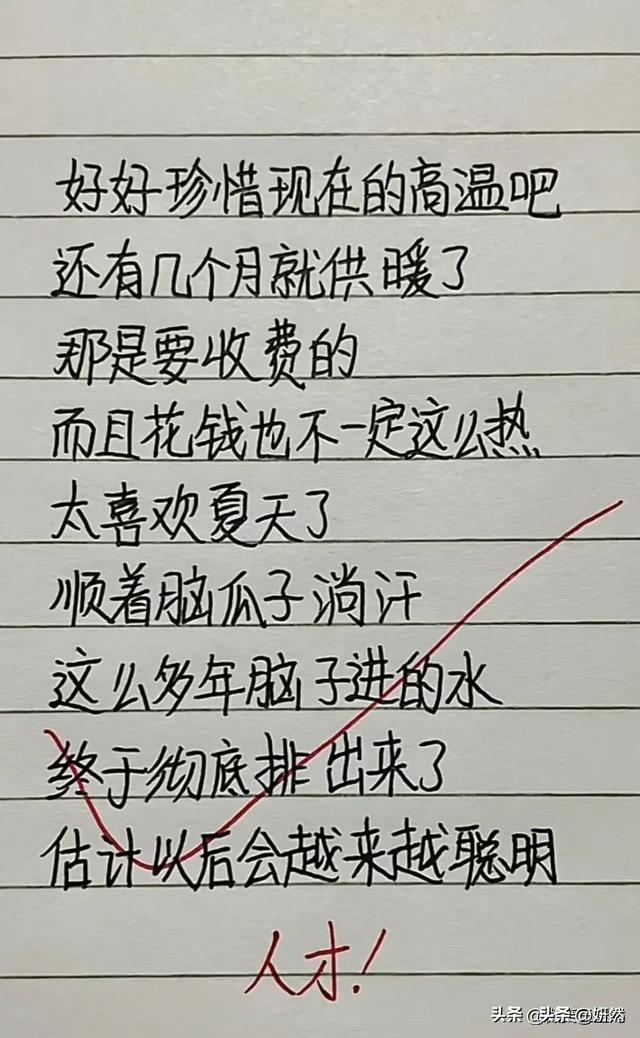 好好珍惜现在的高温吧
还有几个月就供暖了
那是要收费的
而且花钱也不一定这么热
太喜欢夏天了
顺着脑瓜子淌汗
这么多年脑子进的水
终于彻底排出来了
估计以后会越来越聪明
人才!
头条 @头条 妍然